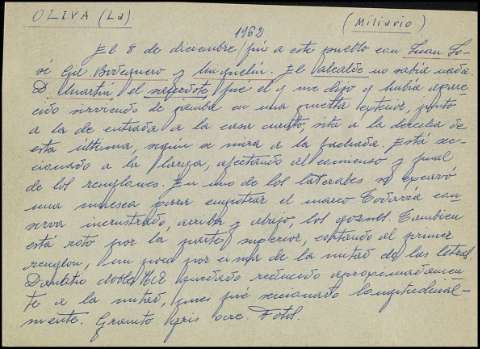 OLIVA (La) (Miliario)
1962
El 8 de diciembre fui a este pueblo con Juan Jo-
sé Gil Bodeguero y Miguelín. El alcalde no sabía nada
D. Martín, el sacerdote fué el q me dijo q había apare-
cido sirviendo de jamba en una puerta exterior, junto
a la de entrada a la casa cuartel, sita a la derecha de
esta última, según se mira a la fachada. Está sec-
cionado a lo largo, afectando al comienzo y final
de los renglones. En uno de los laterales se excavó
una muesca para empotrar el marco. Todavía con-
serva incrustrado, arriba y abajo, los goznes. Tambien
está roto por la parte superior, cortando al primer
renglon, un poco por encima de la mitad de las letras
quedado reducido aproximadamen-
te a la mitad, pues fué seccionado longitudinal-
mente. Granito gris ocre. Fotos.